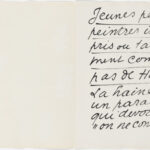 Jeunes pe
peintres i
pris ou ta
ment com
pas de H
La hain
un para
qui devo
on ne co